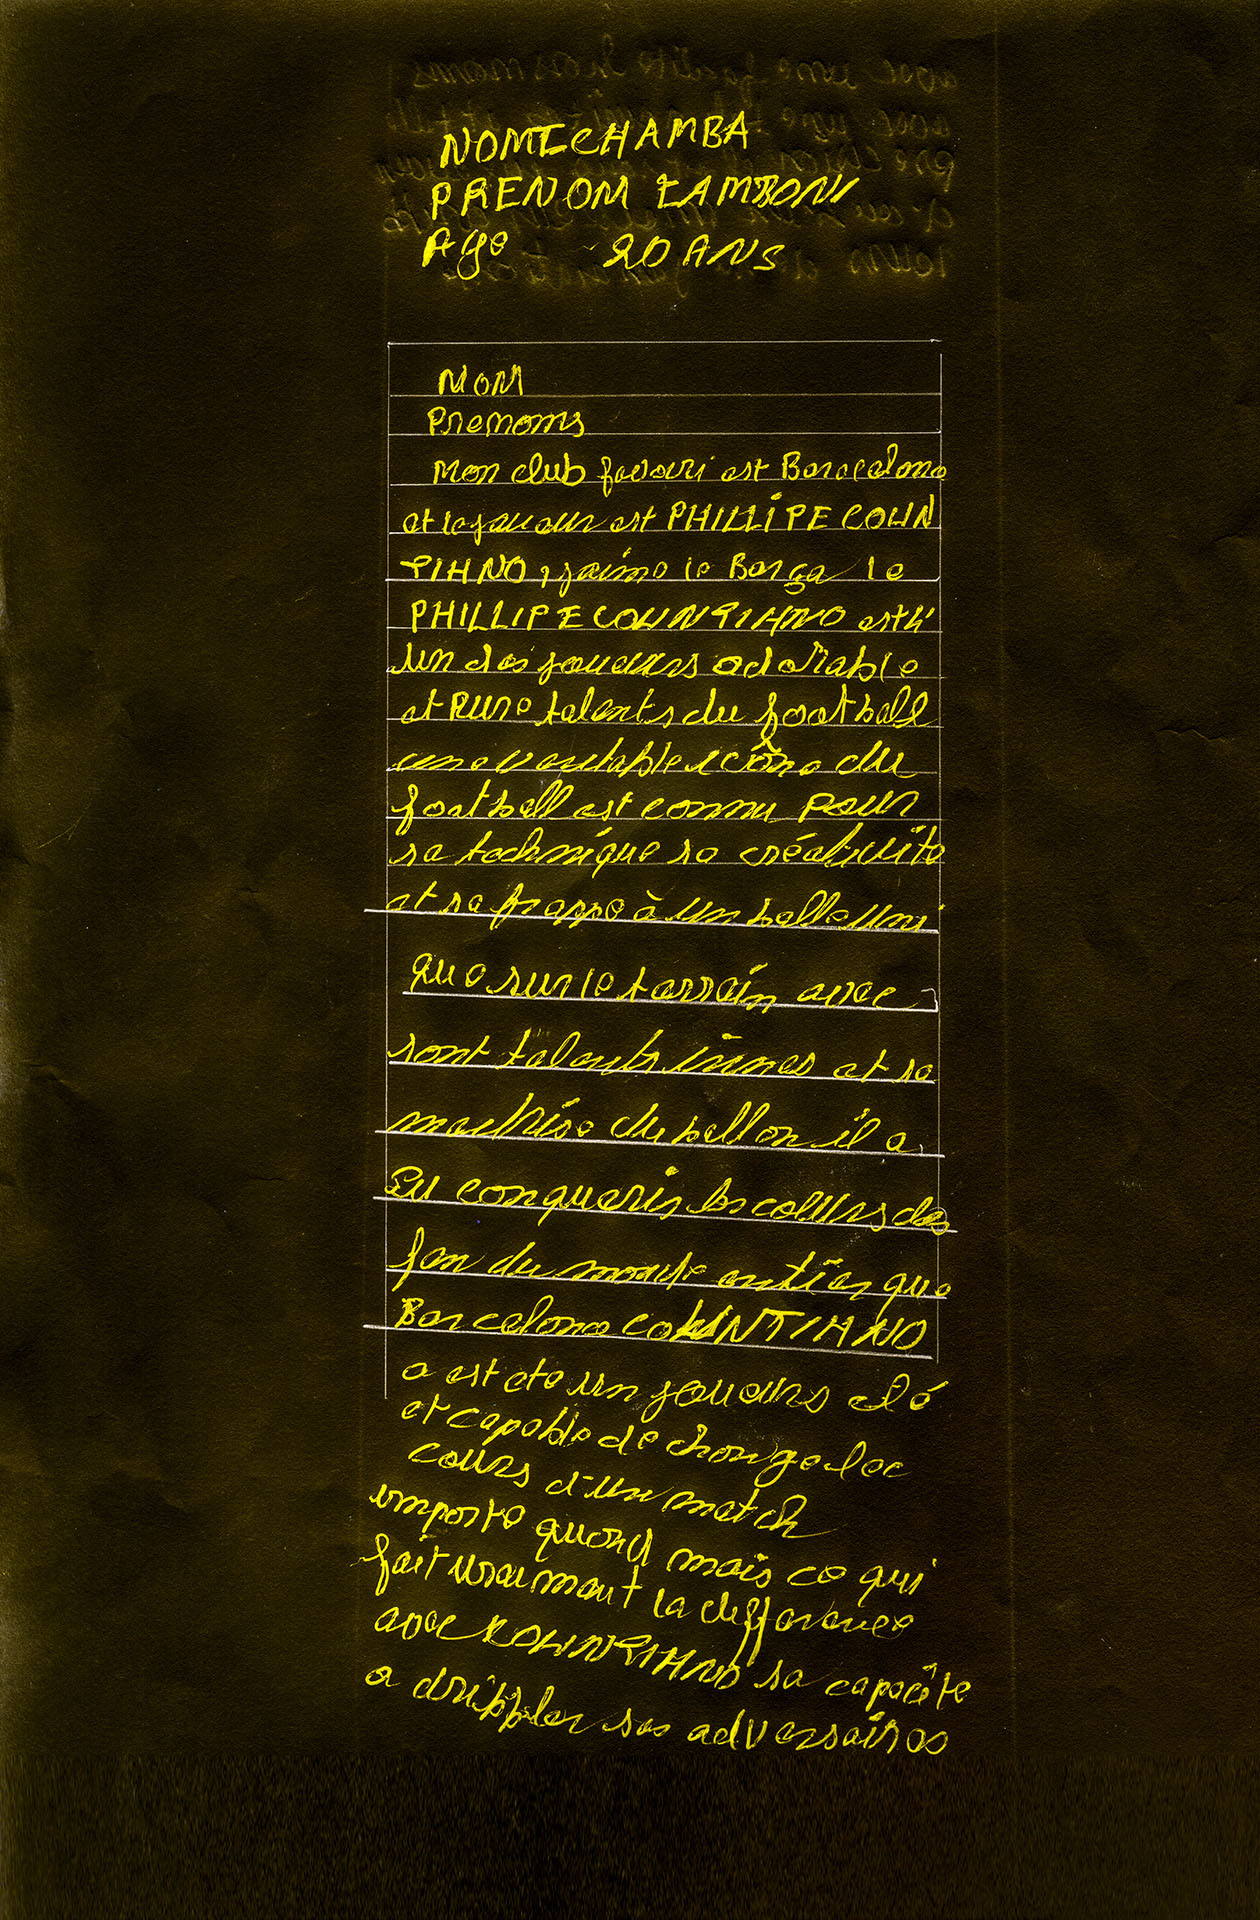 NOM TCHAMBA
PRENOM ZAMBONI
Age 20 ANS
NOM
Prenoms
Mon club favori est Barcelona
et le joueur est PHILLIPE COUN
TIHNO, j'aime le Barça le
PHILLIPE COUNTIHNO est l'
un des joueurs adorable
et Pure talents du football
une veritable icône du
football est connu pour
sa technique sa créativité
et sa frappe à un balle uni
que sur le terrain avec
sont talents innes et sa
maitrise du ballon il a
Pu conqueris les cœurs des
fan du monde entier que
Barcelona COUNTIHNO
a est ete un joueurs clé
et capable de change lec
cours d'un match
importe quand mais ce qui
fait vraimant la difference
avec KOUNTIHNO sa capacite
a dribbler ses adversaires